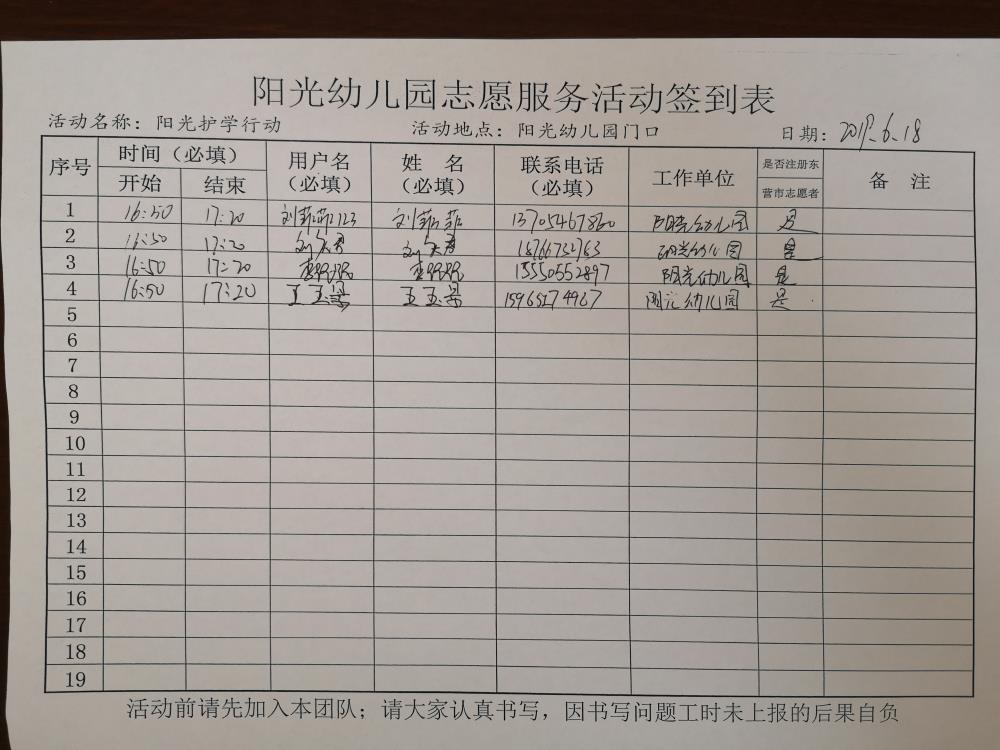 阳光幼儿园志愿服务活动签到表
活动名称：阳光护学行动 活动地点：阳光幼儿园门口 日期：2019.6.18
序号 时间（必填） 用户名（必填） 姓 名（必填） 联系电话（必填） 工作单位 是否注册东营市志愿者 备 注
开始 结束
1 16:50 17:20 刘菲菲123 刘菲菲 阳光幼儿园 是
2 16:50 17:20 阳光幼儿园 是
3 16:50 17:20 15550552897 阳光幼儿园 是
4 16:50 17:20 王玉梁 王玉梁 15965274967 阳光幼儿园 是
5
6
7
8
9
10
11
12
13
14
15
16
17
18
19
活动前请先加入本团队；请大家认真书写，因书写问题工时未上报的后果自负